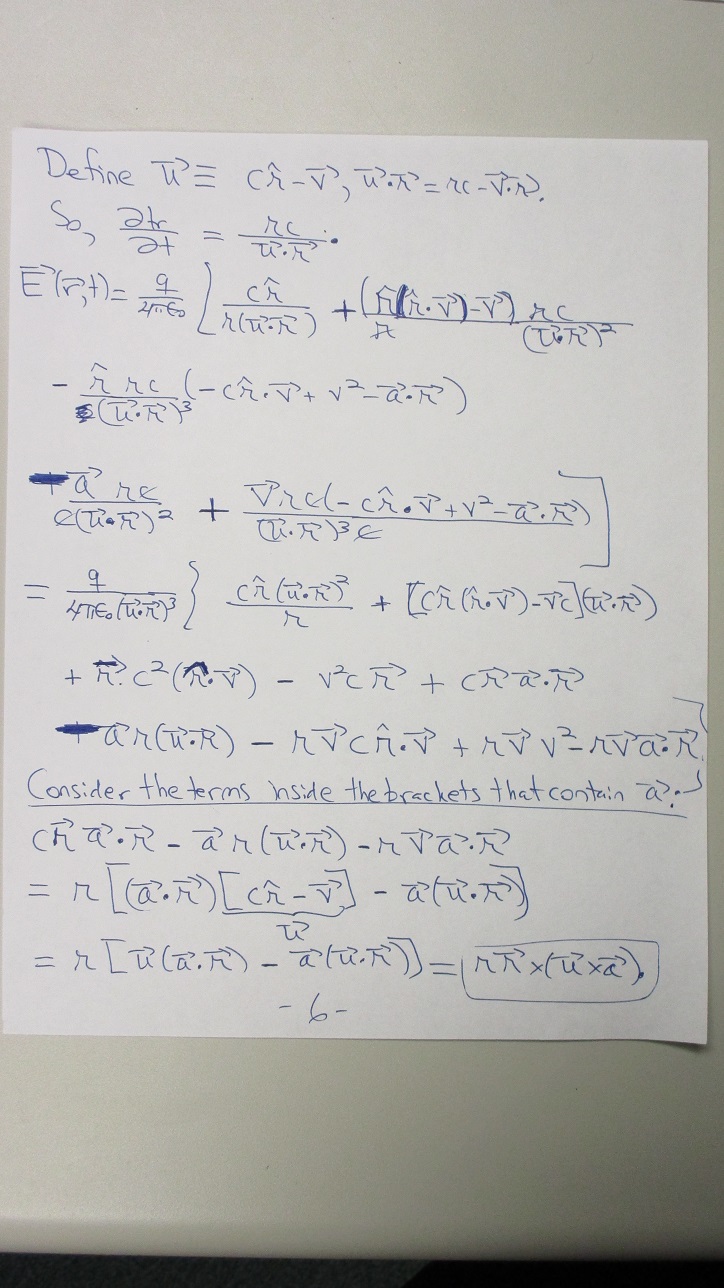 Define u⃗ ≡ cr̂ - v⃗, u⃗·r⃗ = rc - v⃗·r⃗.
So, ∂tr/∂t = rc/(u⃗·r⃗).
E⃗(r⃗,t) = q/(4πε₀) [ cr̂/(r(u⃗·r⃗)) + (r̂(r̂·v⃗) - v⃗)/r rc/(u⃗·r⃗)²
- r̂ rc/(u⃗·r⃗)³ (-cr̂·v⃗ + v² - a⃗·r⃗)
- a⃗ rc/(c(u⃗·r⃗)²) + v⃗rc(-cr̂·v⃗ + v² - a⃗·r⃗)/((u⃗·r⃗)³c) ]
= q/(4πε₀(u⃗·r⃗)³) { cr̂(u⃗·r⃗)²/r + [cr̂(r̂·v⃗) - v⃗c](u⃗·r⃗)
+ r⃗ c²(r̂·v⃗) - v²cr⃗ + cr⃗ a⃗·r⃗
- a⃗r(u⃗·r⃗) - rv⃗cr̂·v⃗ + rv⃗v² - rv⃗a⃗·r⃗ }
Consider the terms inside the brackets that contain a⃗:
cr⃗ a⃗·r⃗ - a⃗r(u⃗·r⃗) - rv⃗a⃗·r⃗
= r[(a⃗·r⃗)[cr̂ - v⃗] - a⃗(u⃗·r⃗)]
u⃗
= r[u⃗(a⃗·r⃗) - a⃗(u⃗·r⃗)] = rr⃗×(u⃗×a⃗).
-6-